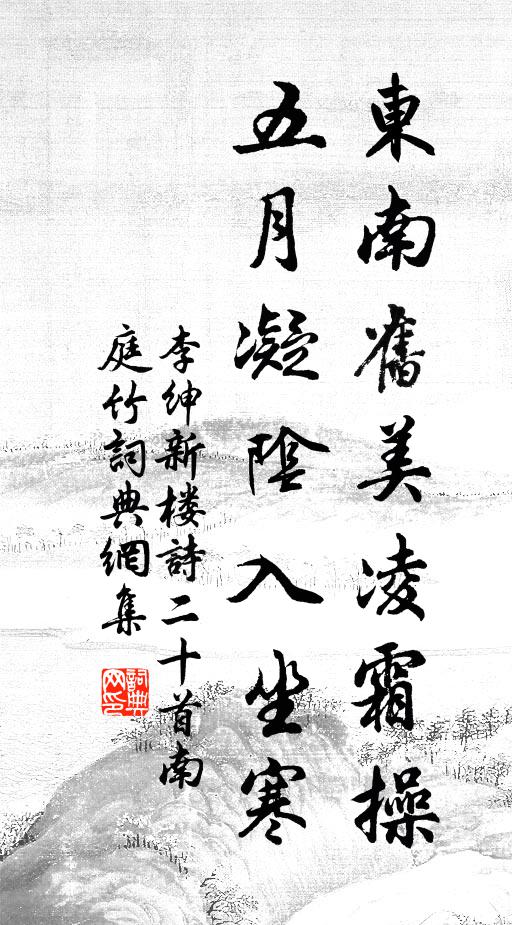 東南舊美凌霜操
五月凝陰入坐寒
李紳新楼詩二十首南
庭竹詞典網集
詞典
网印